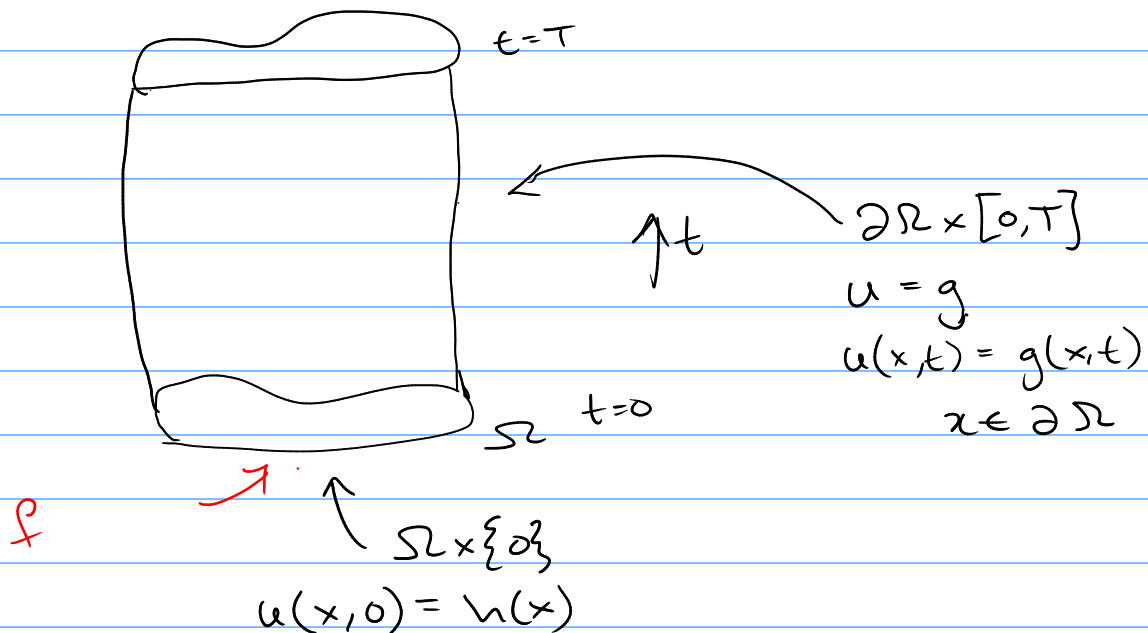 t=T
∂Ω × [0,T]
t
u = g
u(x,t) = g(x,t)
x ∈ ∂Ω
t=0
Ω
f
Ω×{0}
u(x,0) = h(x)